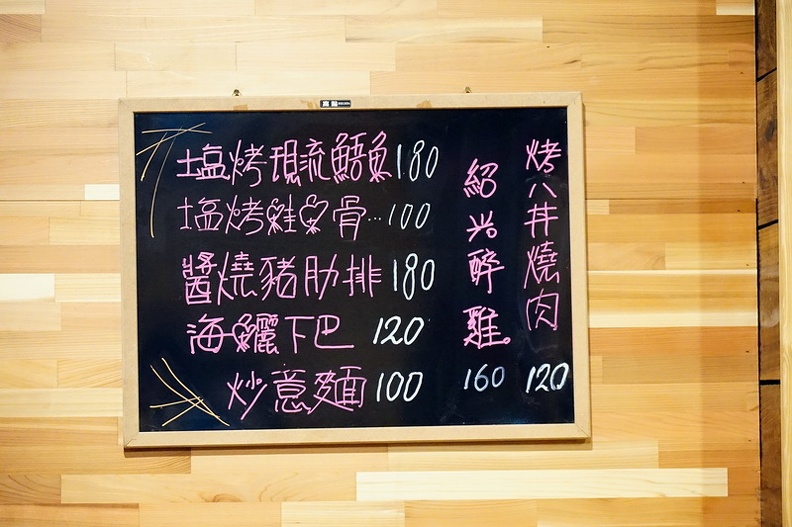 塩烤現流鯃魚180
塩烤鮭魚骨…100
醬燒豬肋排180
海鱺下巴 120
炒意麵100
紹兴醉雞
160
烤八丼燒肉
120